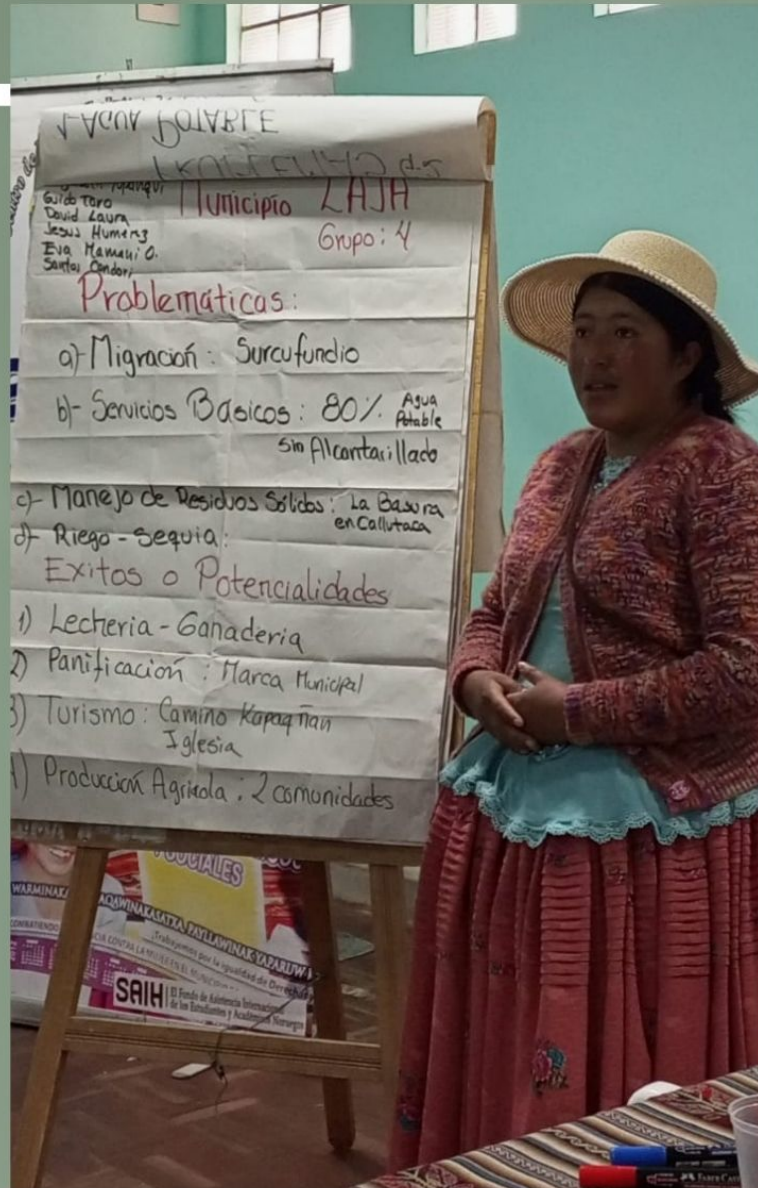 AGUA POTABLE
Guido Toro
David Laura
Jesus Humerez
Eva Mamani O.
Santos Condori
Municipio LAJA
Grupo: 4
Problemáticas:
a)- Migración: Surcufundio
b)- Servicios Básicos: 80% Agua Potable
Sin Alcantarillado
c)- Manejo de Residuos Sólidos: La Basura
en Callutaca
d)- Riego - Sequia:
Exitos o Potencialidades
1) Lecheria - Ganaderia
2) Panificación: Marca Municipal
3) Turismo: Camino Kapaq Ñan
Iglesia
Producción Agricola: 2 comunidades
SOCIALES
WARMINAKA
PAYLLAWINAK YAPARUW
Trabajemos por la igualdad de Derechos
CONTRA LA MUJER EN EL MUNICIPIO
SAIH
El Fondo de Asistencia Internacional
de los Estudiantes y Académicos Noruegos
FABER-CAS